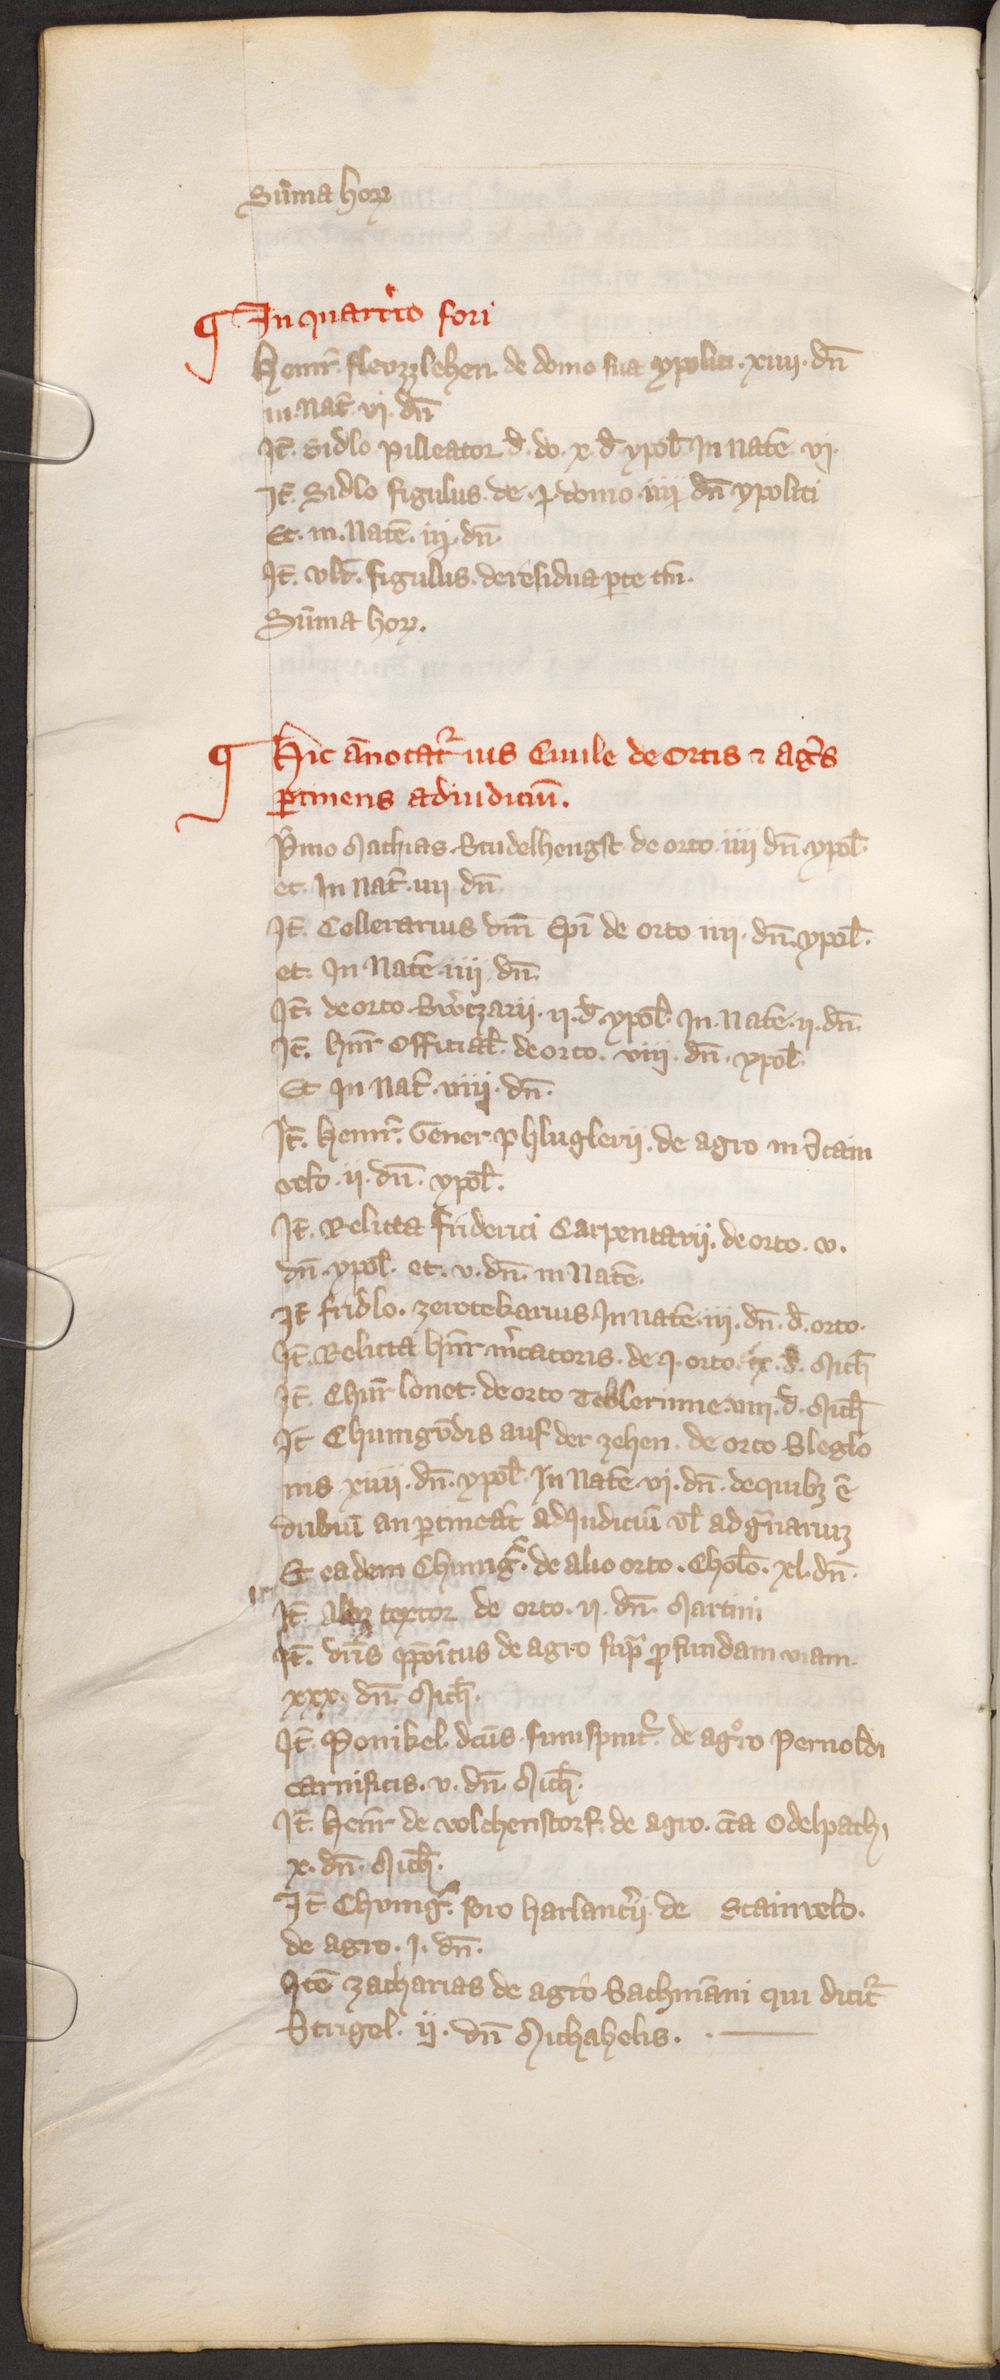 Sūma hoꝝ
In quart'io fori
Heinr̄. flevzzlehen. de domo sua ypoliti. xiiii. dn̄
in. Nat̄. vi. dn̄
It̄. Sidlo pilleator đ. do. x. đ ypol̄. In Natē vi.
It̄. Sidlo figulus. de. p. domo. iiii dn̄ ypoliti
Et. in. Natē. iii. dn̄.
It̄. vlr̄. figulus. de residua ꝑte tm̄.
Sūma hoꝝ.
Hic ānotat᷑ ius Ciuile de Ortis ⁊ ag's
ꝑtinens ad iudiciū.
P'mo Mathias Studelhengst de orto. iiii dn̄ ypol̄.
et. In Nat̄. iiii dn̄.
It̄. Cellerarius dn̄i Ep̄i de orto iiii. dn̄. ypol̄.
et. In Natē. iiii dn̄.
It̄. de orto. Sw'tzarii. ii. đ. ypol̄. In. Natē. ii. dn̄.
It̄. hn̄r Official̄. de orto. viii. dn̄. ypol̄.
Et In Nat̄. viii. dn̄.
It̄. Heinr̄. Gener. phluglerii. de agro in Stain
velo. ii. dn̄. ypol̄.
It̄. Relicta Friderici Carpentarii. de orto. v.
dn̄. ypol̄. et. v. dn̄. in Natē.
It̄ fridlo. zerotekarius In natē. iii. dn̄. đ. orto.
It̄. Relicta hn̄r m'catoris. de. i. orto. ix. đ. Mich̄
It̄. Chn̄r lonet. de orto Toblerinne. viii. đ. Mich̄
It̄ Chunigūdis auf der zehen. de orto Sleglo
nis xiiii. dn̄. ypol̄. In Natē. vi. dn̄. de quibꝫ ē
dubiū an ꝑtineāt ad Iudiciū vl̄ ad g̃nariuꝫ
Et eadem Chunig̃. de alio orto. Cholō. xl. dn̄.
It̄. textor de orto. ii. dn̄. Martini
It̄. dn̄s p̄po̅itus de agro sup̃ ꝓfundam viam.
xxx. dn̄. Mich̄.
It̄. Ponikel dc̄us. de agro Pernoldi
carnificis. v. dn̄. Mich̄.
It̄. Heinr̄ de volchenstorf. de agro. c̄ta Odelpach,
x. dn̄. Mich̄.
It̄ Chvnig̃. soro harlant'ii. de Stainvelo.
de agro. i. dn̄.
Itē zacharias de agro Sachmāni qui dicit᷑
Strigel. ii. dn̄ Michahelis.